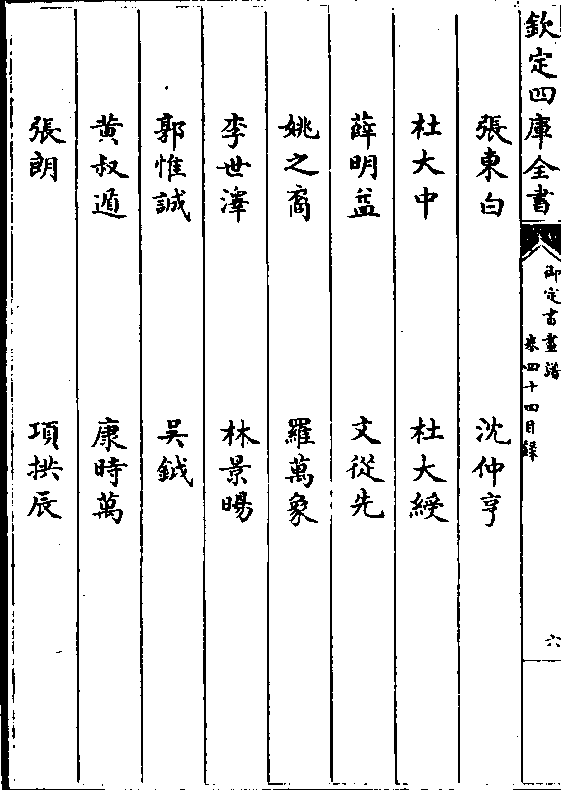 欽定四庫全書
御定書畫譜
卷四十四目録
六
張東白 沈仲亨
杜大中 杜大綬
薛明益 文從先
姚之裔 羅萬象
李世澤 林景暘
郭惟誠 吳鉞
黄叔遁 康時萬
張朗 項拱辰